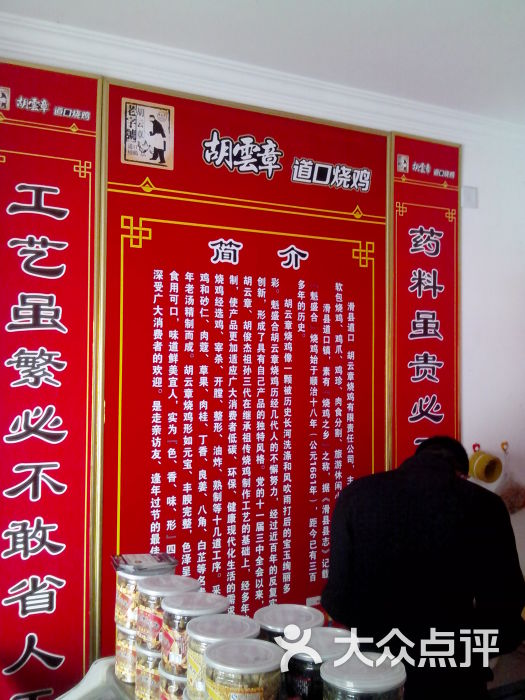 胡雲章 道口烧鸡
工艺虽繁必不敢省人
老字號
胡云章
胡雲章 道口烧鸡
简介
滑县道口 胡云章烧鸡有限责任公司，主
软包烧鸡、鸡爪、鸡珍、肉食分割、旅游休闲
滑县道口镇，素有 烧鸡之乡 之称，据《滑县县志》记载
“魁盛合”烧鸡始于顺治十八年（公元1661年），距今已有三百
多年的历史。
胡云章烧鸡像一颗被历史长河洗涤和风吹雨打后的宝玉绚丽多
彩。魁盛合胡云章烧鸡历经几代人的不懈努力，经过近百年的反复实
创新，形成了具有自己产品的独特风格。党的十一届三中全会以来，
胡云章、胡俊杰祖孙三代在继承祖传烧鸡制作工艺的基础上，经多年
制，使产品更加适应广大消费者低碳、环保、健康现代化生活的需求
烧鸡经选鸡、宰杀、开膛、整形、油炸、熟制等十几道工序。采
鸡和砂仁、肉蔻、草果、肉桂、丁香、良姜、八角、白芷等名
年老汤精制而成。胡云章烧鸡形如元宝、丰腴完整，色泽呈
食用可口，味道鲜美宜人，实为“色、香、味、形”四
深受广大消费者的欢迎。是走亲访友、逢年过节的最佳
胡雲章 道口烧鸡
药料虽贵必
大众点评